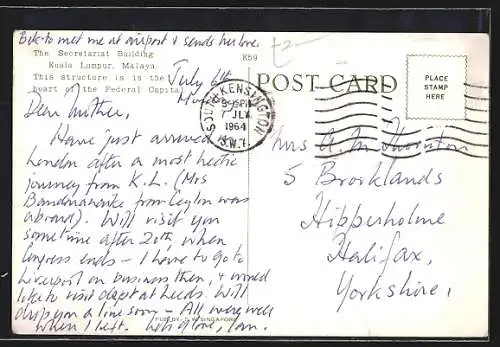 Bik to met me at airport & sends her love.
The Secretariat Building
Kuala Lumpur, Malaya
This structure is in the
heart of the Federal Capital
K59
POST CARD
PLACE
STAMP
HERE
SOUTH KENSINGTON
7 JLY
1964
S.W.7.
July
Dear Mother,
Have just arrived
London after a most hectic
journey from K.L. (Mrs
Bandaranaike from Ceylon was
aboard). Will visit you
sometime after 20th, when
Congress ends – I have to go to
Liverpool on business then, & would
like to visit dept at Leeds. Will
drop you a line soon – All were well
when I left. Lots of love, Ian.
Mrs A. M. Thornton
5 Brooklands
Hipperholme
Halifax,
Yorkshire,
SINGAPORE